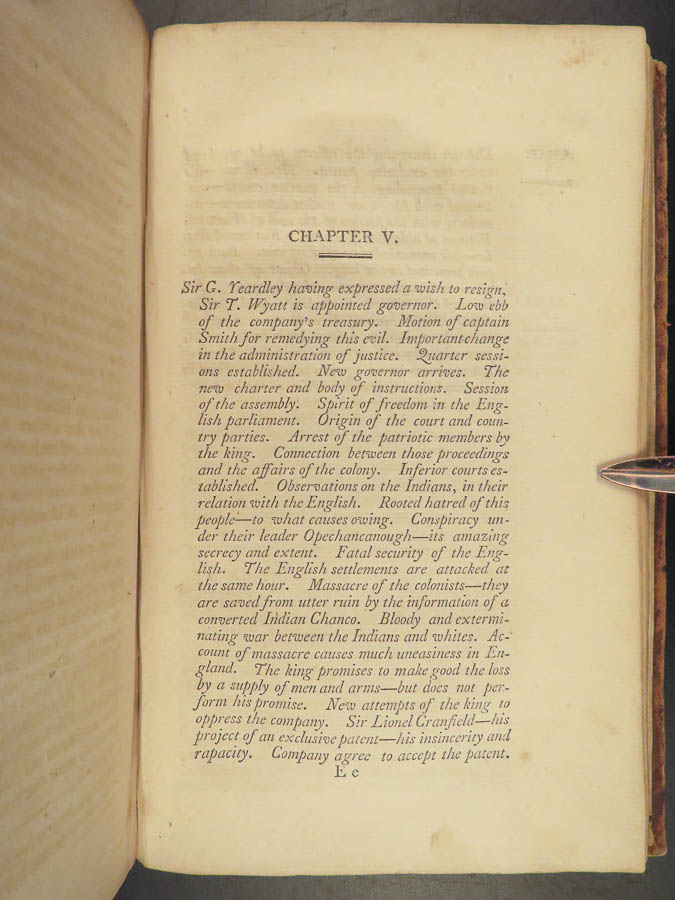 CHAPTER V.
Sir G. Yeardley having expressed a wish to resign,
Sir T. Wyatt is appointed governor. Low ebb
of the company's treasury. Motion of captain
Smith for remedying this evil. Important change
in the administration of justice. Quarter sessi-
ons established. New governor arrives. The
new charter and body of instructions. Session
of the assembly. Spirit of freedom in the Eng-
lish parliament. Origin of the court and coun-
try parties. Arrest of the patriotic members by
the king. Connection between those proceedings
and the affairs of the colony. Inferior courts es-
tablished. Observations on the Indians, in their
relation with the English. Rooted hatred of this
people—to what causes owing. Conspiracy un-
der their leader Opechancanough—its amazing
secrecy and extent. Fatal security of the Eng-
lish. The English settlements are attacked at
the same hour. Massacre of the colonists—they
are saved from utter ruin by the information of a
converted Indian Chanco. Bloody and extermi-
nating war between the Indians and whites. Ac-
count of massacre causes much uneasiness in En-
gland. The king promises to make good the loss
by a supply of men and arms—but does not per-
form his promise. New attempts of the king to
oppress the company. Sir Lionel Cranfield—his
project of an exclusive patent—his insincerity and
rapacity. Company agree to accept the patent.
E e